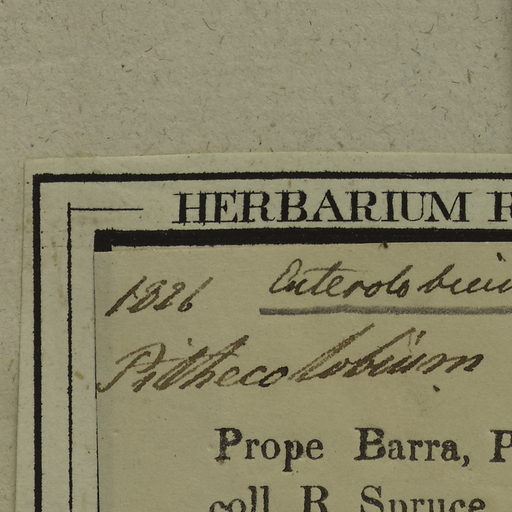 HERBARIUM R
1826 Enterolobium
Pithecolobium
Prope Barra, P
coll. R. Spruce